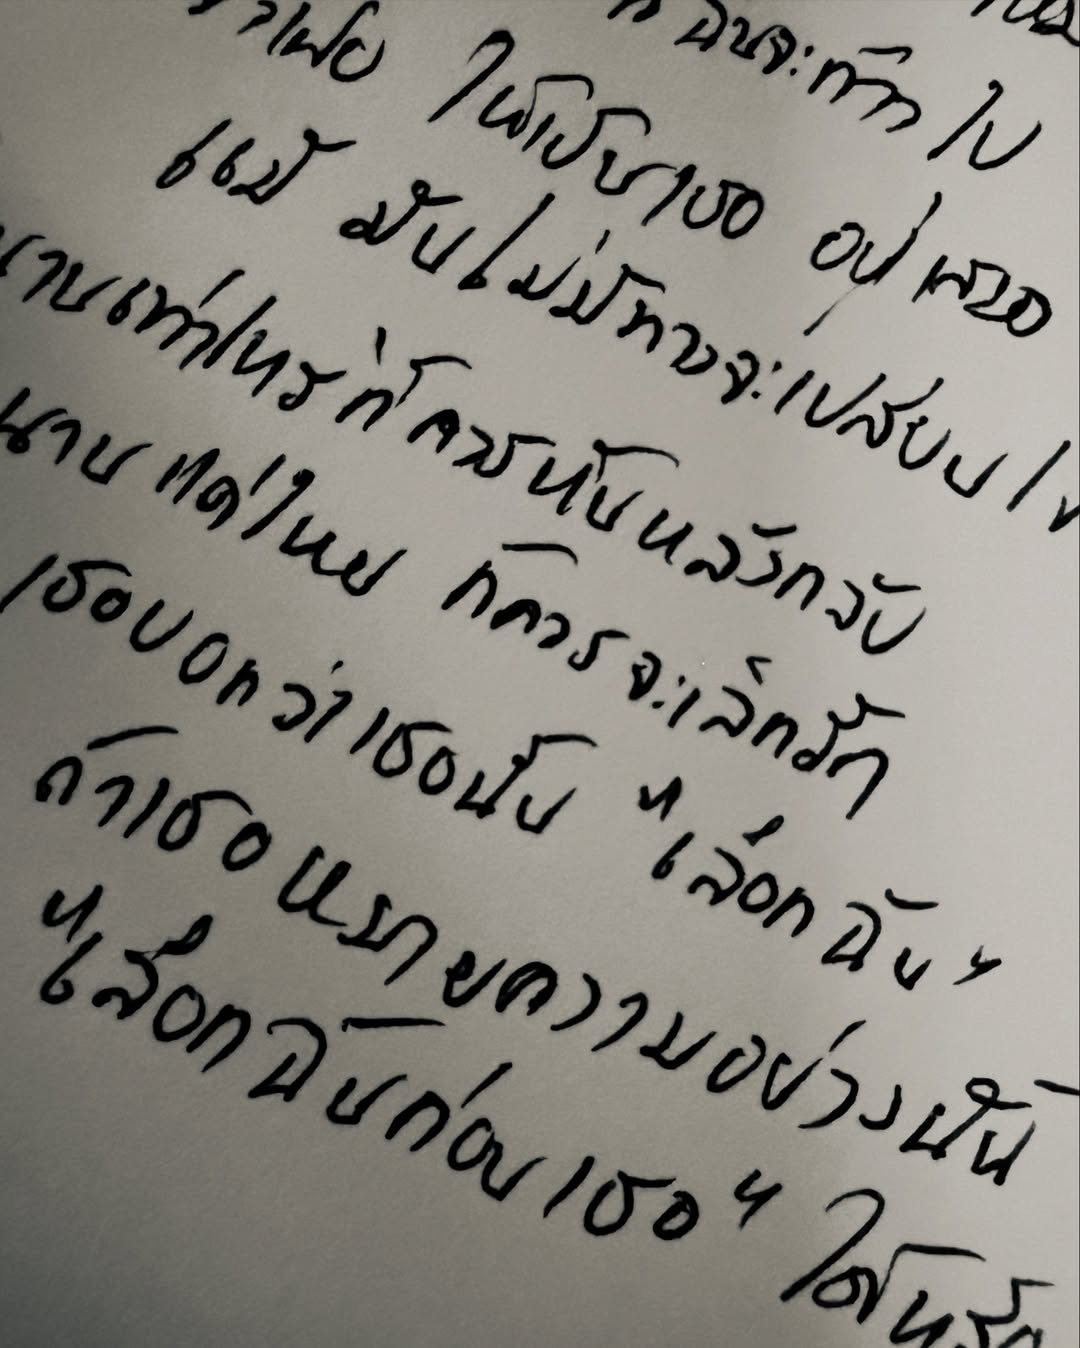 ฉันจะก้าวไป
ให้เป็นเธอ อยู่ตลอด
แม้ มันไม่มีทางจะเปลี่ยน
นานเท่าไหร่ก็ควรหันหลังกลับ
นานแค่ไหน ก็ควรจะเลิกรัก
เธอบอกว่าเธอนั้น "เลือกฉัน"
ถ้าเธอหมายความอย่างนั้น
"เลือกฉันก่อนเธอ" ได้